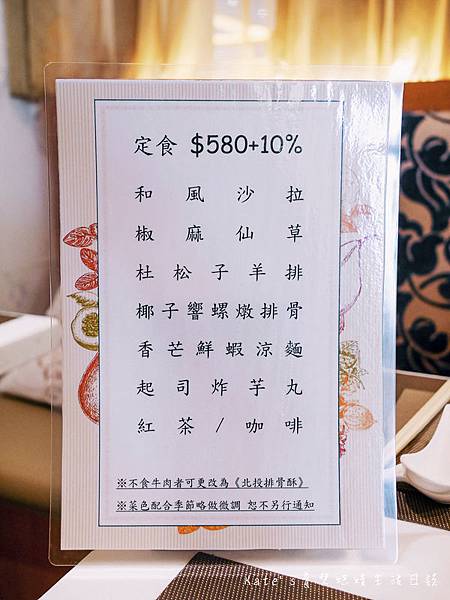 定食 $580+10%
和風沙拉
椒麻仙草
杜松子羊排
椰子響螺燉排骨
香芒鮮蝦涼麵
起司炸芋丸
紅茶/咖啡
※不食牛肉者可更改為《北投排骨酥》
※菜色配合季節略做微調 恕不另行通知